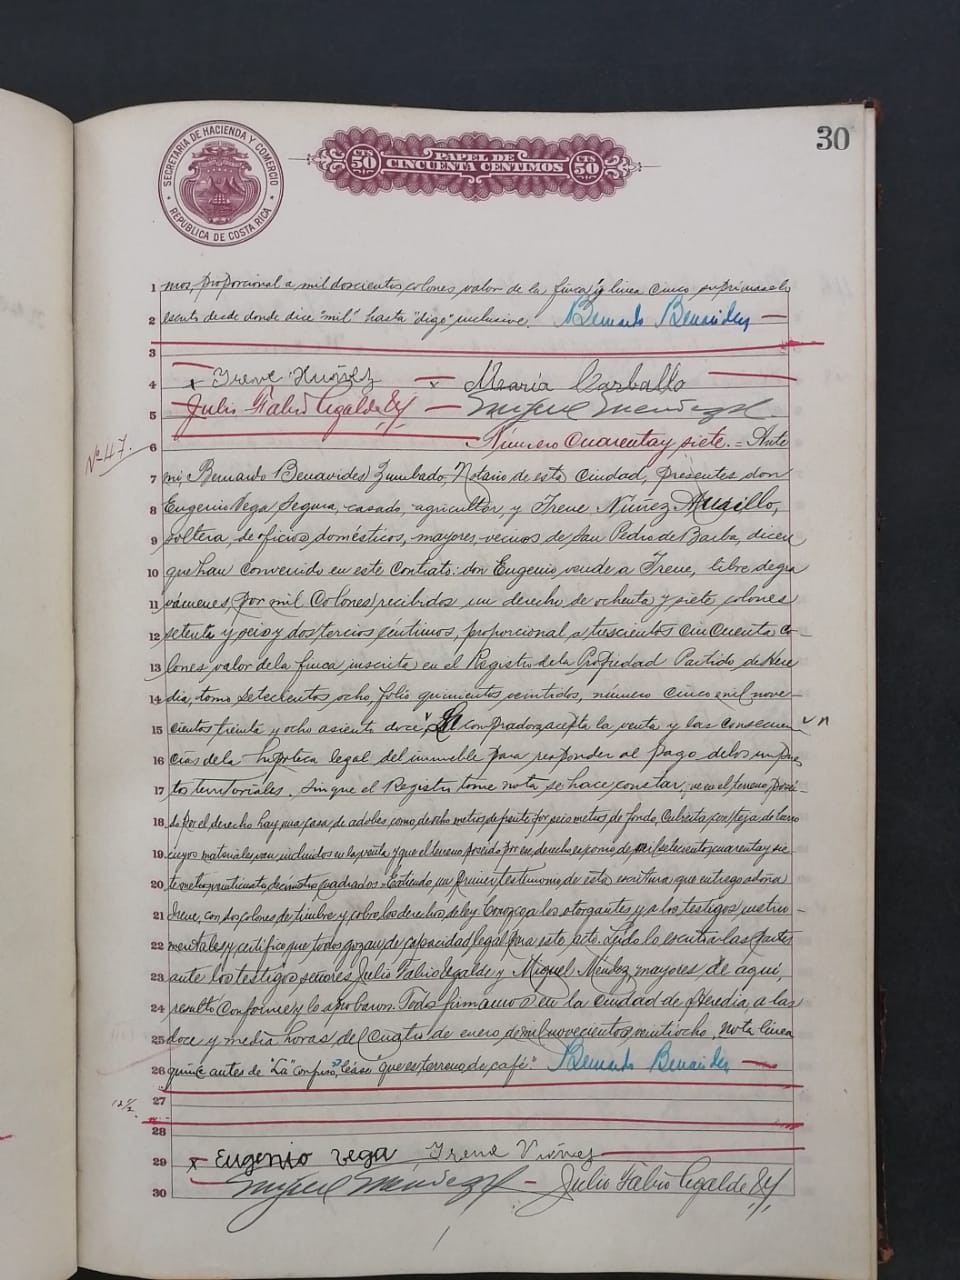 30
SECRETARIA DE HACIENDA Y COMERCIO
REPUBLICA DE COSTA RICA
CTS 50 PAPEL DE CINCUENTA CENTIMOS CTS 50
1 mos, proporcional a mil doscientos colones valor de la finca y linea cinco suprimase lo
2 escrito desde donde dice "mil" hasta "digo" inclusive. Bernardo Benavides
3
4 x Irene Nuñez x Maria Carballo
5 Julio Fabio Ugalde Miguel Mendez
6 Número Cuarenta y siete. = Ante
Nº 47.
7 mi, Bernardo Benavides Zumbado, Notario de esta Ciudad, presentes don
8 Eugenio Vega Segura, casado, agricultor, y Irene Núñez Murillo,
9 soltera, de oficios domésticos, mayores, vecinos de San Pedro de Barba, dicen
10 que han convenido en este Contrato: don Eugenio vende a Irene, libre de gra
11 vámenes, por mil Colones recibidos un derecho de ochenta y siete colones
12 setenta y seis y dos tercios céntimos, proporcional a trescientos cincuenta co-
13 lones valor de la finca inscrita en el Registro de la Propiedad Partido de Here
14 dia, tomo setecientos ocho, folio quinientos veintidos, número cinco mil nove-
15 cientos treinta y ocho asiento doce La compradora acepta la venta y las consecuen
16 cias de la hipoteca legal del inmueble para responder al pago de los impues
17 tos territoriales. Sin que el Registro tome nota se hace constar, que en el terreno poseí-
18 do por el derecho hay una casa de adobes como de ocho metros de frente por seis metros de fondo, cubierta con teja de barro
19 cuyos materiales van incluidos en la venta y que el terreno poseido por ese derecho es como de mil setecientos cuarenta y sie
20 te metros veintinueve decímetros cuadrados. Extiendo un primer testimonio de esta escritura que entrego a doña
21 Irene, con dos colones de timbre y cobro los derechos de ley. Conozco a los otorgantes y a los testigos instru-
22 mentales y certifico que todos gozan de capacidad legal para este acto. Leído lo escrito a las partes
23 ante los testigos señores Julio Fabio Ugalde y Miguel Mendez mayores de aquí,
24 resultó conforme y lo aprobaron. Todos firmamos en la ciudad de Heredia, a las
25 doce y media horas del cuatro de enero de mil novecientos veintiocho. nota linea
26 quince antes de "La" confuso, léase "que es terreno de café." Bernardo Benavides
27
12½
28
29 x Eugenio vega Irene Núñez
30 Miguel Mendez Julio Fabio Ugalde